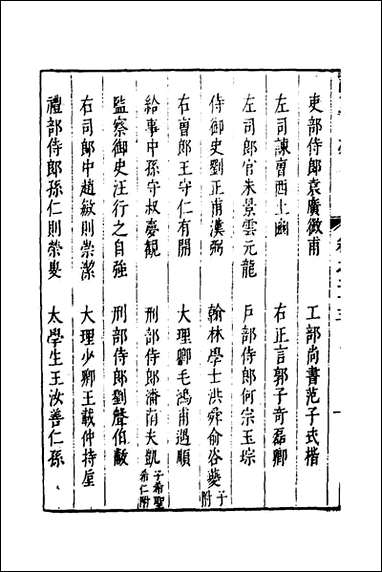 吏部侍郎袁廣微甫　工部尚書范子式楷
左司諫曹西士豳　右正言郭子奇磊卿
左司郎官朱景雲元龍　戶部侍郎何宗玉琮
侍御史劉正甫漢弼　翰林學士洪舜俞咨夔子附
右曹郎王守仁有開　大理卿毛鴻甫遇順
給事中孫守叔夢觀　刑部侍郎潘萳夫凱子希聖希仁附
監察御史汪行之自強　刑部侍郎劉聲伯黻
右司郎中趙敏則崇潔　大理少卿王載仲持垕
禮部侍郎孫仁則榮叟　太學生王汝善仁孫